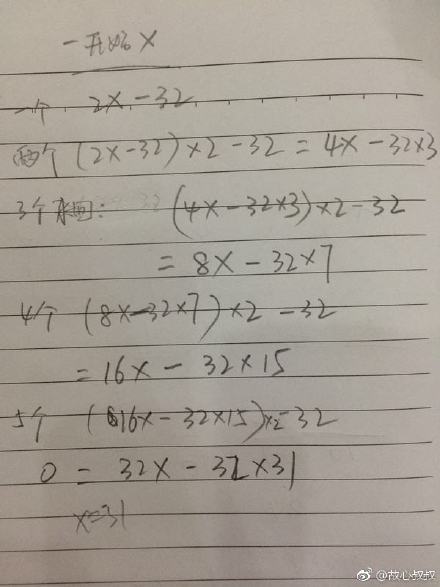 一开始 X
一个 2X-32
两个 (2X-32)×2-32=4X-32×3
3个来回: (4X-32×3)×2-32
=8X-32×7
4个 (8X-32×7)×2-32
=16X-32×15
5个 (16X-32×15)×2-32
0=32X-32×31
X=31
@故心叔叔